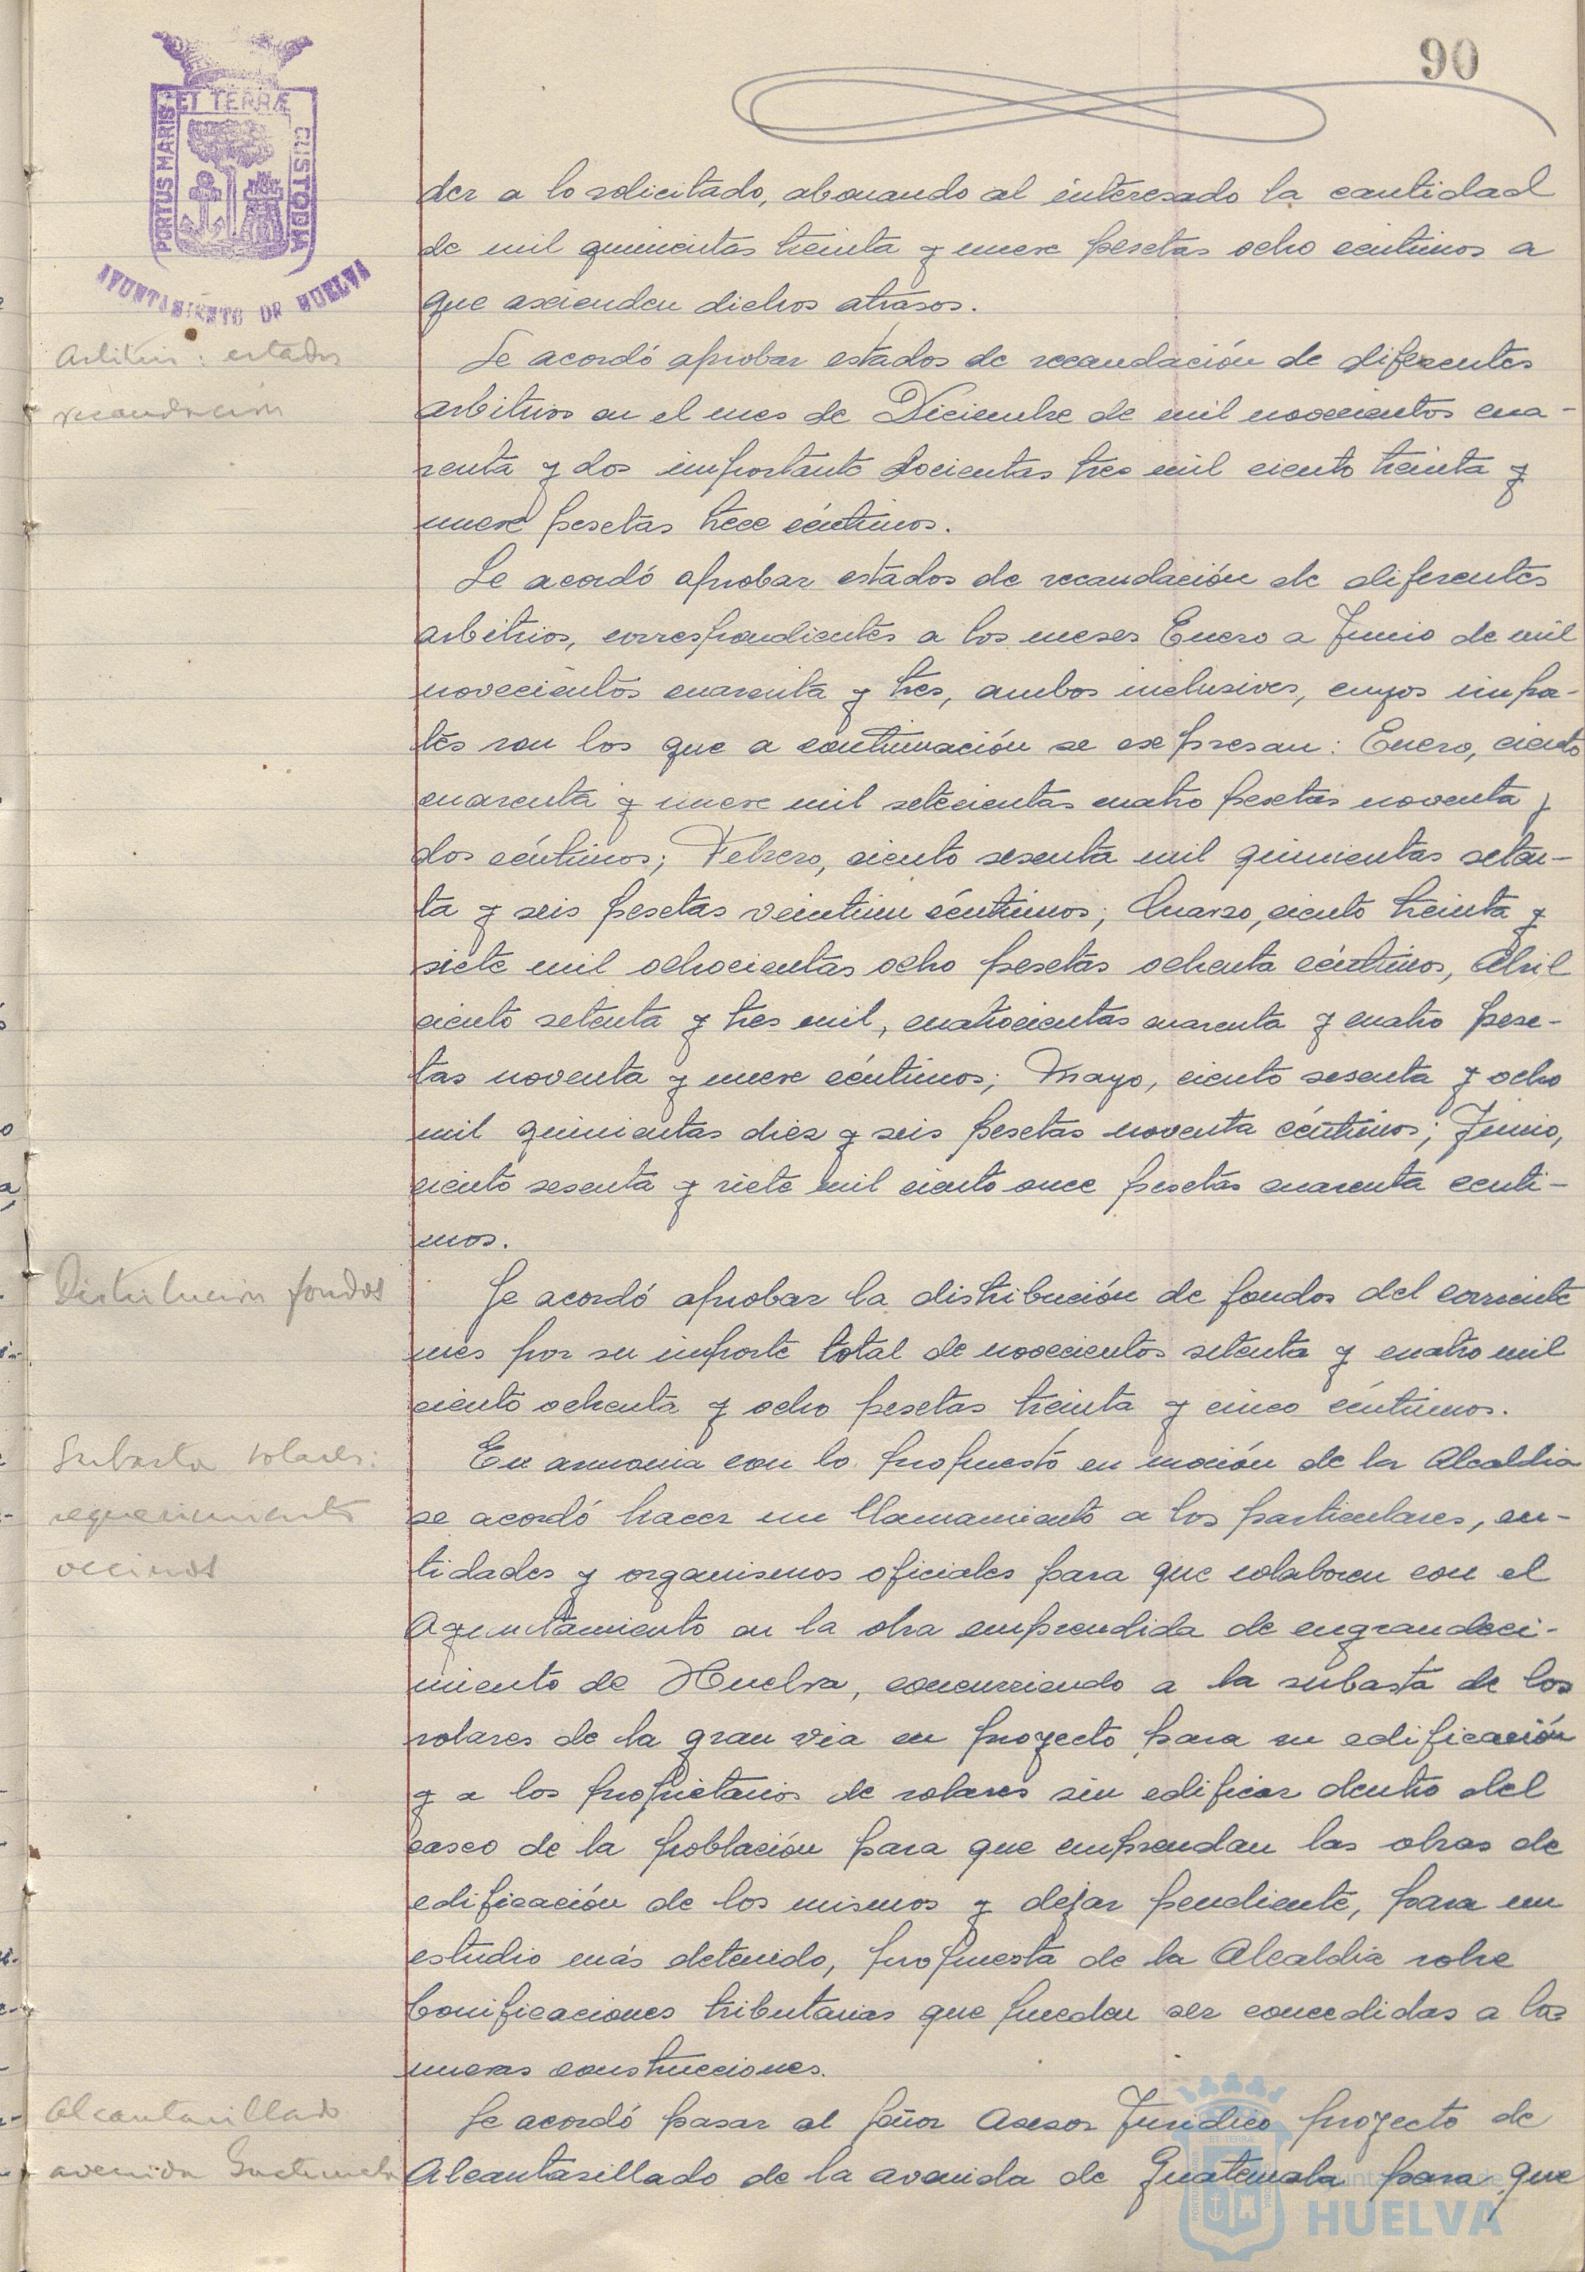 90
PORTUS MARIS ET TERRÆ CUSTODIA
AYUNTAMIENTO DE HUELVA
der a lo solicitado, abonando al interesado la cantidad
de mil quinientas treinta y nueve pesetas ocho céntimos a
que ascienden dichos atrasos.
Arbitrios: estados
recaudación
Se acordó aprobar estados de recaudación de diferentes
arbitrios en el mes de Diciembre de mil novecientos cua-
renta y dos importante docientas tres mil ciento treinta y
nueve pesetas trece céntimos.
Se acordó aprobar estados de recaudación de diferentes
arbitrios, correspondientes a los meses Enero a Junio de mil
novecientos cuarenta y tres, ambos inclusives, cuyos impor-
tes son los que a continuación se expresan: Enero, ciento
cuarenta y nueve mil setecientas cuatro pesetas noventa y
dos céntimos; Febrero, ciento sesenta mil quinientas seten-
ta y seis pesetas veintiun céntimos; Marzo, ciento treinta y
siete mil ochocientas ocho pesetas ochenta céntimos, Abril
ciento setenta y tres mil, cuatrocientas cuarenta y cuatro pese-
tas noventa y nueve céntimos; Mayo, ciento sesenta y ocho
mil quinientas diez y seis pesetas noventa céntimos; Junio,
ciento sesenta y siete mil ciento once pesetas cuarenta centi-
mos.
Distribución fondos
Se acordó aprobar la distribución de fondos del corriente
mes por su importe total de novecientos setenta y cuatro mil
ciento ochenta y ocho pesetas treinta y cinco céntimos.
Subasta solares:
requerimiento
vecinos
En armonia con lo propuesto en moción de la Alcaldia
se acordó hacer un llamamiento a los particulares, en-
tidades y organismos oficiales para que colaboren con el
Ayuntamiento en la obra emprendida de engrandeci-
miento de Huelva, concurriendo a la subasta de los
solares de la gran via en proyecto para su edificación
y a los propietarios de solares sin edificar dentro del
casco de la población para que emprendan las obras de
edificación de los mismos y dejar pendiente, para un
estudio más detenido, propuesta de la Alcaldia sobre
bonificaciones tributarias que pueden ser concedidas a las
nuevas construcciones.
Alcantarillado
avenida Guatemala
Se acordó pasar al señor Asesor Juridico proyecto de
Alcantarillado de la avenida de Guatemala para que
Ayuntamiento de
HUELVA